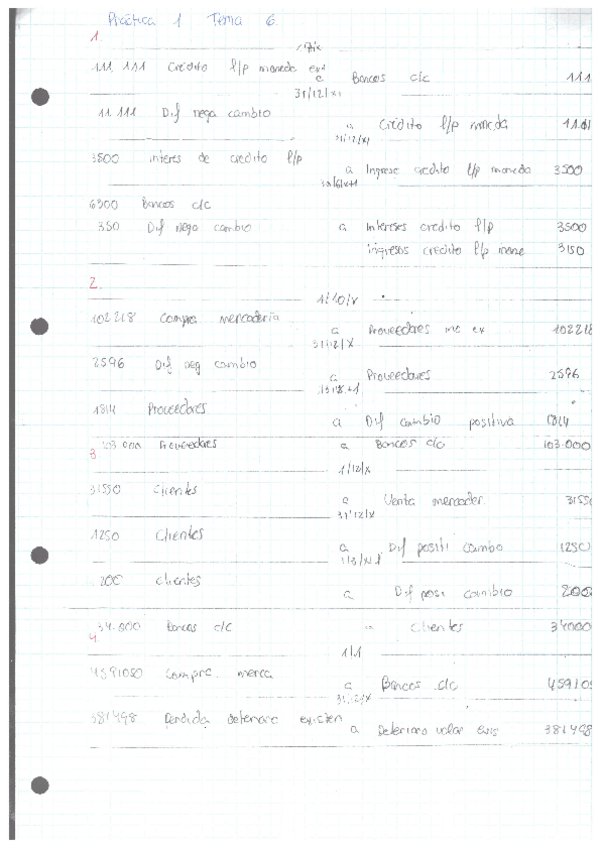 Práctica 1 Tema 6.
1.
111.111 Crédito l/p moneda ext
a Bancos c/c 111
31/12/x1
11.111 Dif nega cambio
a Crédito l/p moneda
3500 interes de credito l/p
a Ingreso credito l/p moneda 3500
6300 Bancos c/c
350 Dif nega cambio a Intereses credito l/p 3500
ingresos credito l/p mone 3150
2.
1/10/x
102218 Compra mercaderia
a Proveedores mo ex 102218
31/12/x
2596 Dif neg cambio
a Proveedores 2596
1814 Proveedores
a Dif cambio positiva 1814
3. 103.000 Proveedores a Bancos c/c 103.000
1/12/x
31550 Clientes
a Venta mercader. 3155
31/12/x
1250 Clientes
a Dif positi cambo 1250
200 clientes
a Dif posi cambio 200
34.000 Bancos c/c Clientes 34000
4.
1/1
4591050 Compra merca
a Bancos c/c 459105
31/12/x
381498 Perdida deterioro existen
a Deterioro valor exis 381498